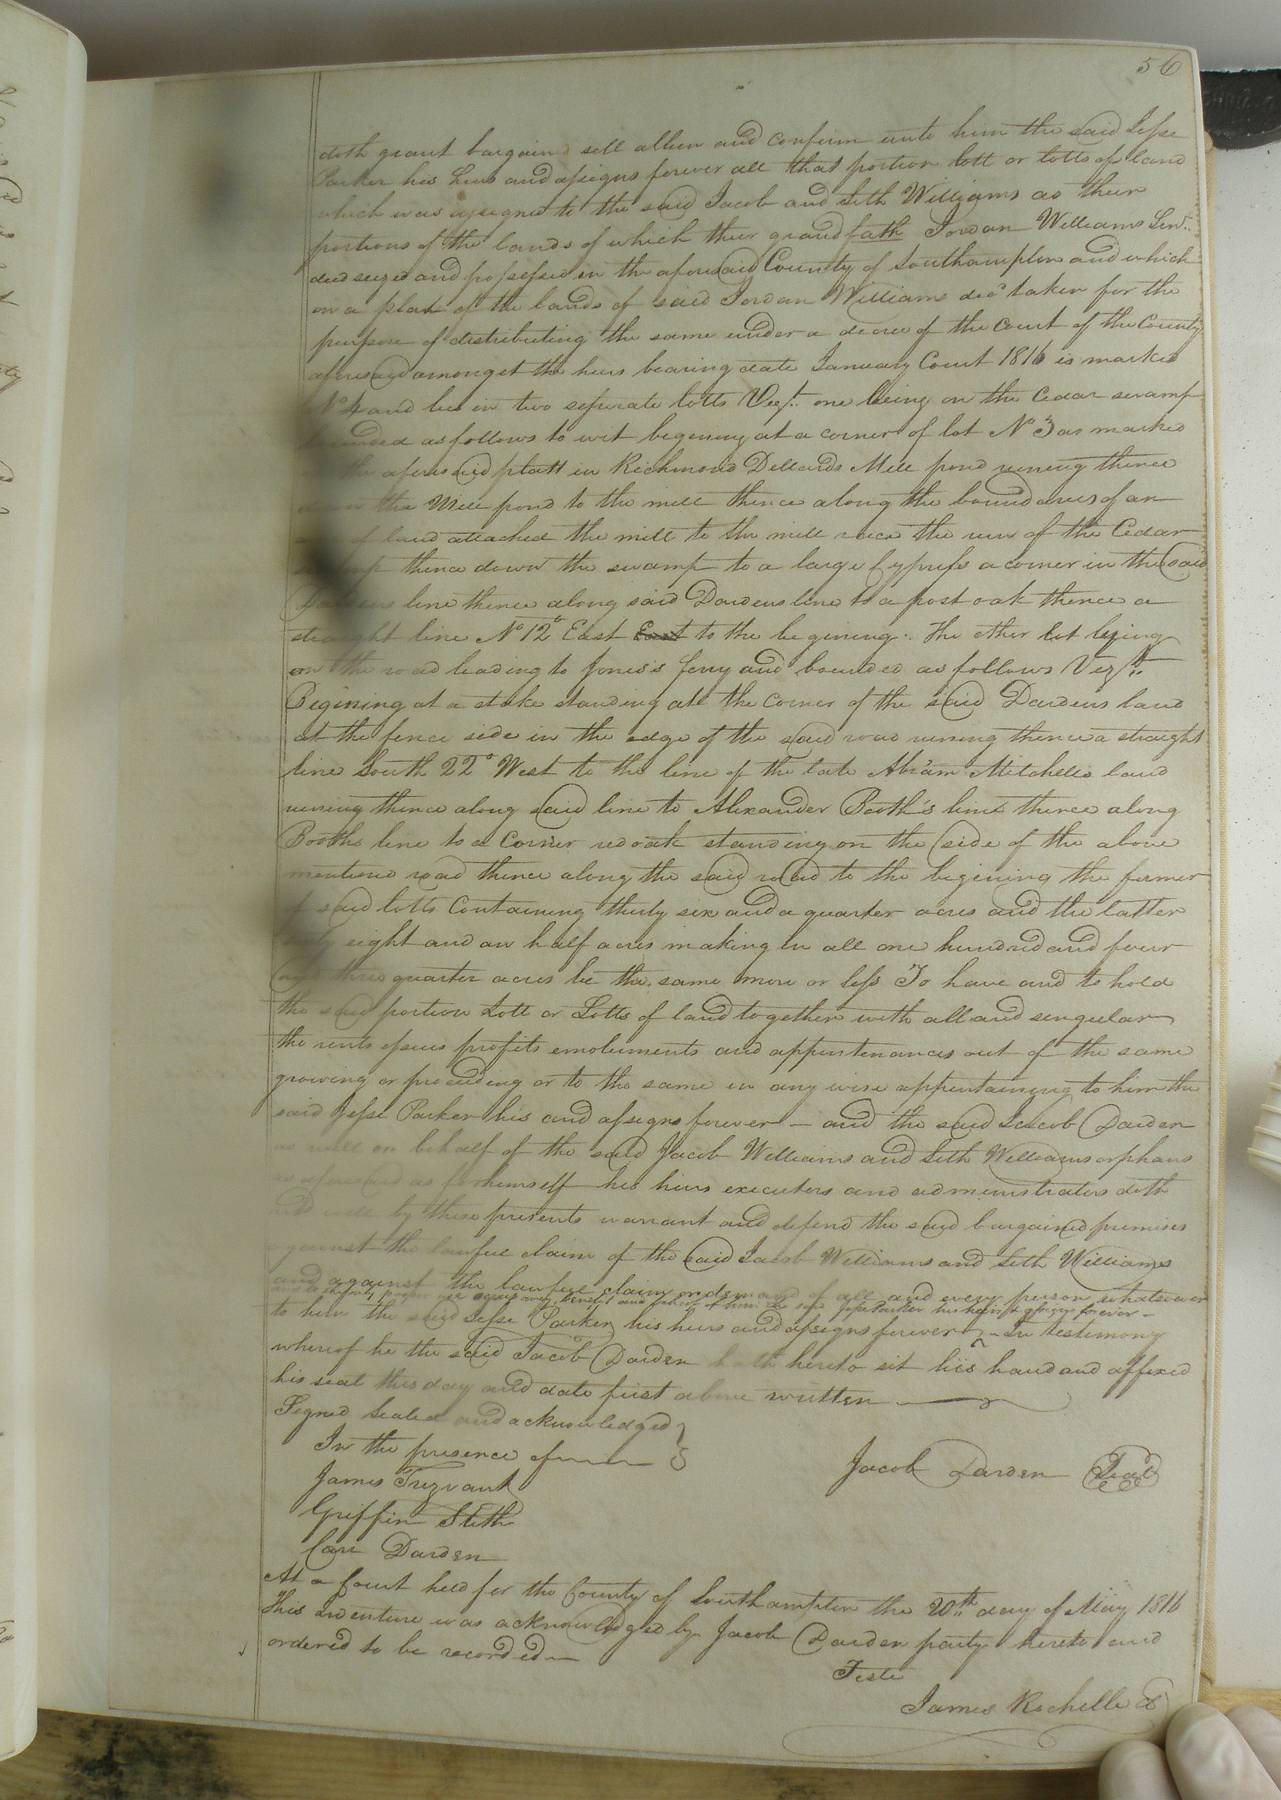 56
doth grant bargain sell allien and confirm unto him the said Jesse
Parker his heirs and assigns forever all that portion lott or lotts of land
which was assigned to the said Jacob and Seth Williams as their
portions of the lands of which their grandfath Jordan Williams Senr.
died seized and possessed in the aforesaid County of Southampton and which
on a plat of the lands of said Jordan Williams decd taken for the
purpose of distributing the same under a decree of the Court of the County
aforesaid amongst the heirs bearing date January Court 1816 is marked
No 4 and lies in two seperate lotts Vizt. one being on the Cedar swamp
bounded as follows to wit begining at a corner of lot No 3 as marked
the aforesaid platt in Richmond Dellards Mill pond runing thence
the Mill pond to the mill thence along the boundaries of an
of land attached the mill to the mill race the run of the Cedar
thence down the swamp to a large Cypress a corner in the said
Dardens line thence along said Dardens line to a post oak thence a
straight line No 12° East East to the begining. The other lot lying
on the road leading to Jones's ferry and bounded as follows Vizt.
Begining at a stake standing at the corner of the said Dardens land
at the fence side in the edge of the said road runing thence a straight
line South 22° West to the line of the late Abram Mitchells land
runing thence along said line to Alexander Booth's line thence along
Booths line to a Corner red oak standing on the side of the above
mentioned road thence along the said road to the begining the former
of said lotts Containing thirty six and a quarter acres and the latter
eight and an half acres making in all one hundred and four
and three quarter acres be the same more or less To have and to hold
the said portion Lott or Lotts of land together with all and singular
the rents issues profits emoluments and appurtenances out of the same
growing or proceeding or to the same in any wise appertaining to him the
said Jesse Parker his and assigns forever — and the said Jacob Darden
as well on behalf of the said Jacob Williams and Seth Williams orphans
as aforesaid as for himself his heirs executors and administrators doth
and will by these presents warrant and defend the said bargained premises
against the lawful claim of the said Jacob Williams and Seth Williams
and against the lawful claim or demand of all and every person whatsoever
and to the only proper use and benefit and behoof of him the said Jesse Parker his heirs & assigns forever -
to him the said Jesse Parker his heirs and assigns forever ^ - In testimony
whereof he the said Jacob Darden hath hereto set his hand and affixed
his seal this day and date first above written
Signed Sealed and acknowledged
In the presence of
Jacob Darden Seal
James Trezvant
Griffin Stith
Carr Darden
At a Court held for the County of Southampton the 20th day of May 1816
This Indenture was acknowledged by Jacob Darden party hereto and
ordered to be recorded
Teste
James Rochelle